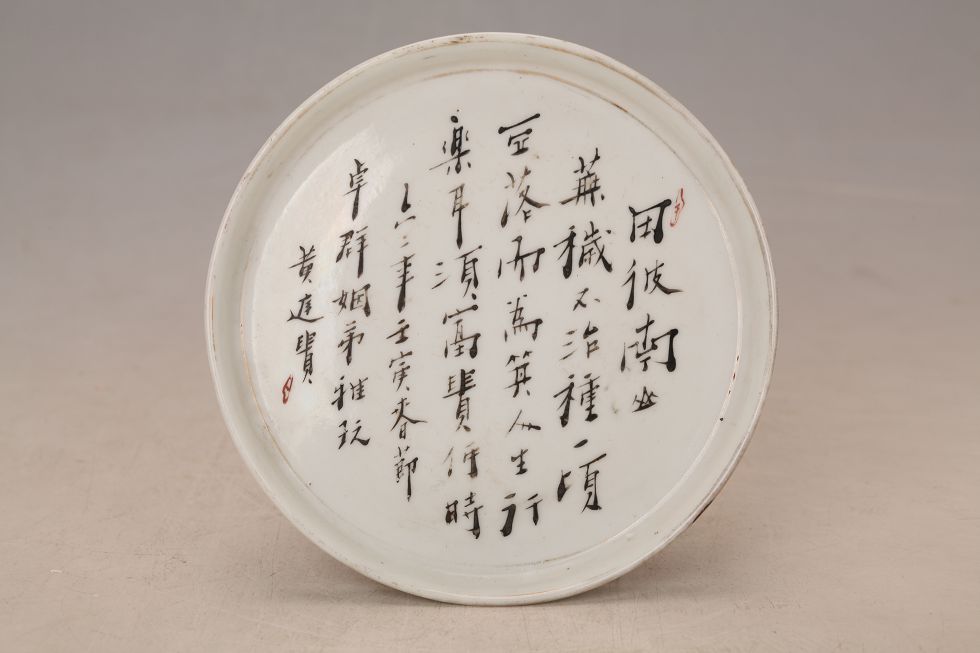 田彼南山
蕪穢不治種一頃
豆落而為箕人生行
樂耳須富貴何時
六二年壬寅春節
卓群姻弟雅玩
黃廷貴